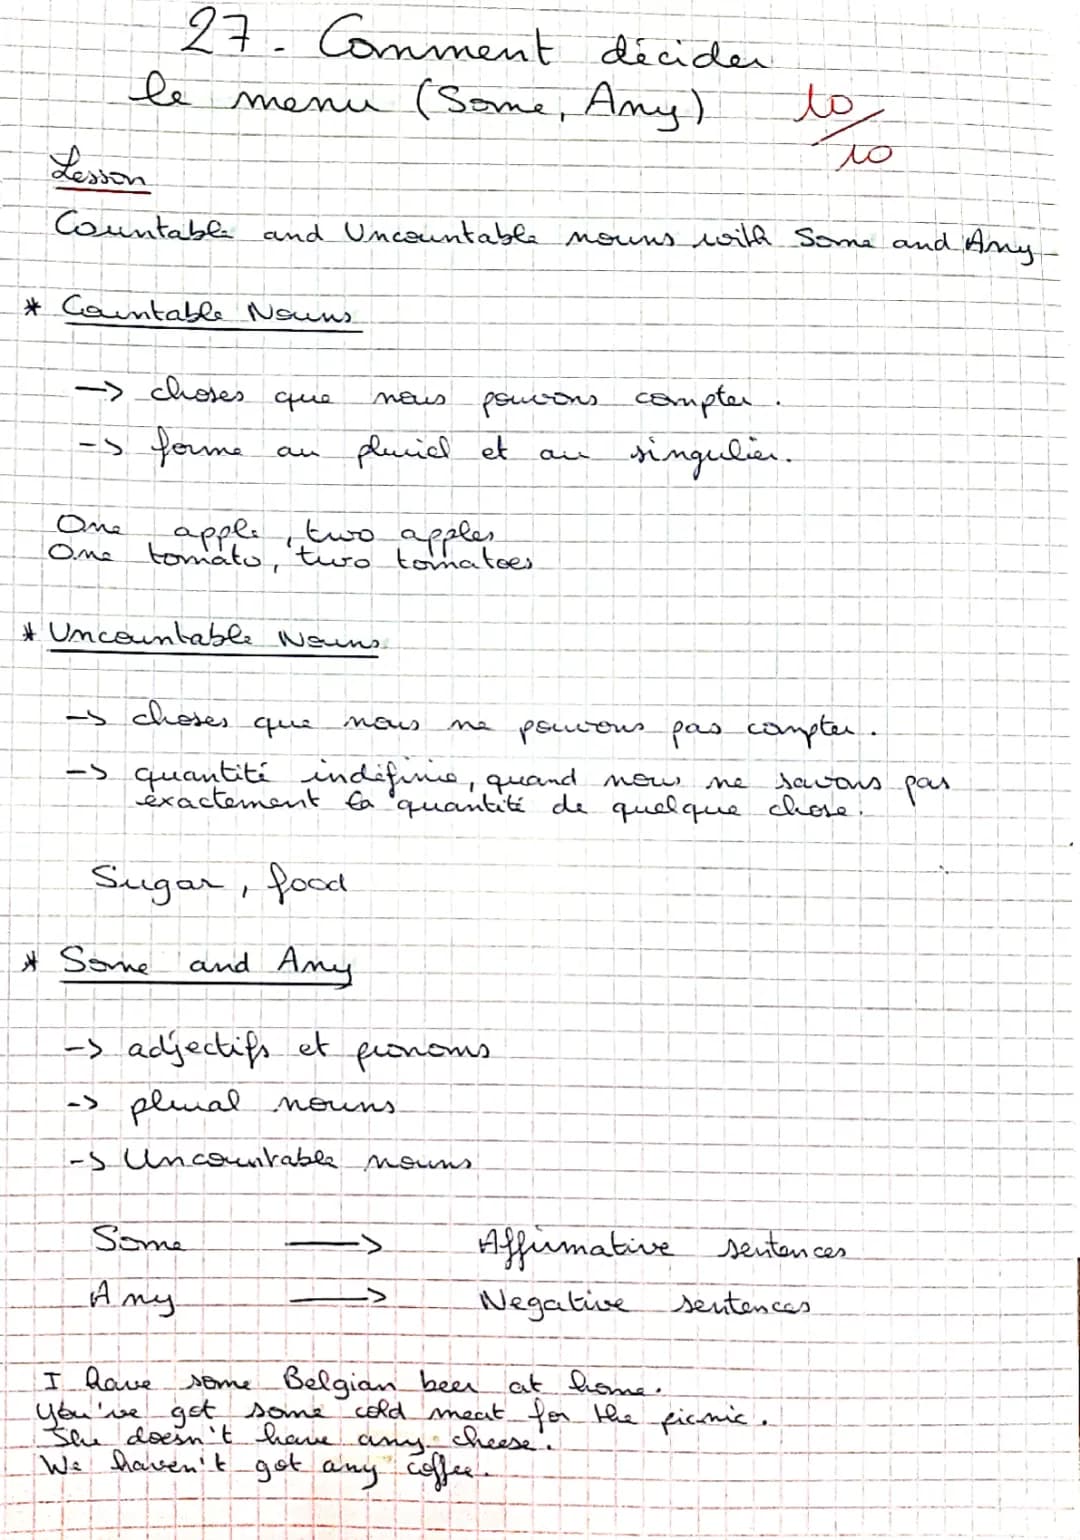 27. Comment décider
le menu (Some, Any) 10/10
Lesson
Countable and Uncountable nouns with Some and Any
* Countable Nouns
-> choses que nous pouvons compter.
-> forme au pluriel et au singulier.
One apple, two apples
One tomato, two tomatoes
* Uncountable Nouns
-> choses que nous ne pouvons pas compter.
-> quantité indéfinie, quand nous ne savons pas
exactement la quantité de quelque chose.
Sugar, food
* Some and Any
-> adjectifs et pronoms
-> plural nouns
-> Uncountable nouns
Some -> Affirmative sentences
Any -> Negative sentences
I have some Belgian beer at home.
You've got some cold meat for the picnic.
She doesn't have any cheese.
We haven't got any coffee.